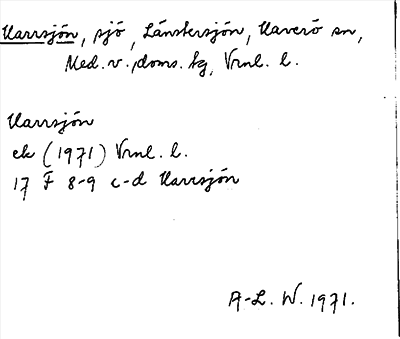 Harrsjön, sjö, Länstersjön, Haverö sn,
Med. v. doms. hg, Vrnl. l.
Harrsjön
ek (1971) Vrnl. l.
17 F 8-9 c-d Harrsjön
A-L. W. 1971.